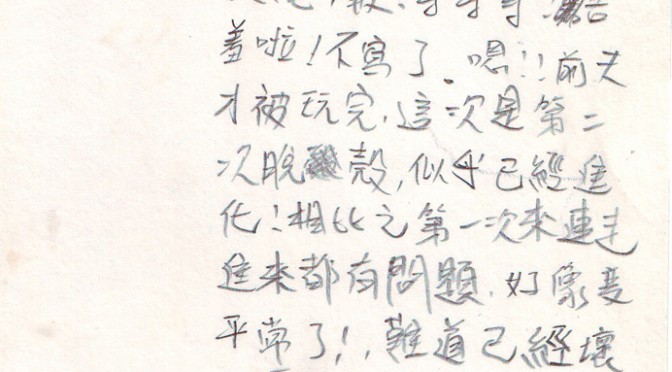 羞啦！不寫了。嗯！！前天
才被玩完，這次是第二
次脫殼，似乎已經進
化！相比之第一次來連走
進來都有問題，好像变
平常了！，難道已經壞